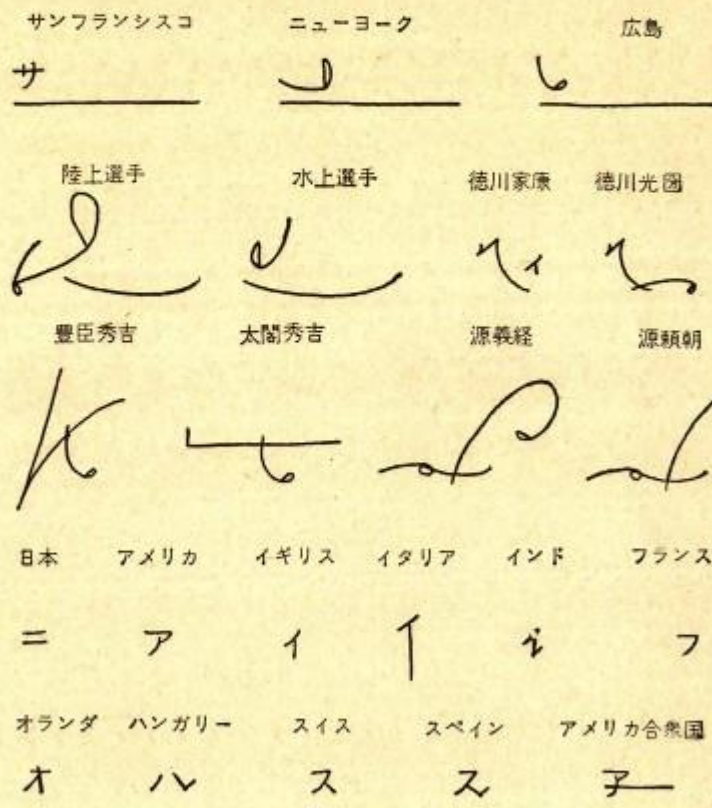 サンフランシスコ ニューヨーク 広島
サ
陸上選手 水上選手 徳川家康 徳川光圀
ィ
豊臣秀吉 太閤秀吉 源義経 源頼朝
日本 アメリカ イギリス イタリア インド フランス
ニ ア イ イ フ
オランダ ハンガリー スイス スペイン アメリカ合衆国
オ ハ ス ス ア